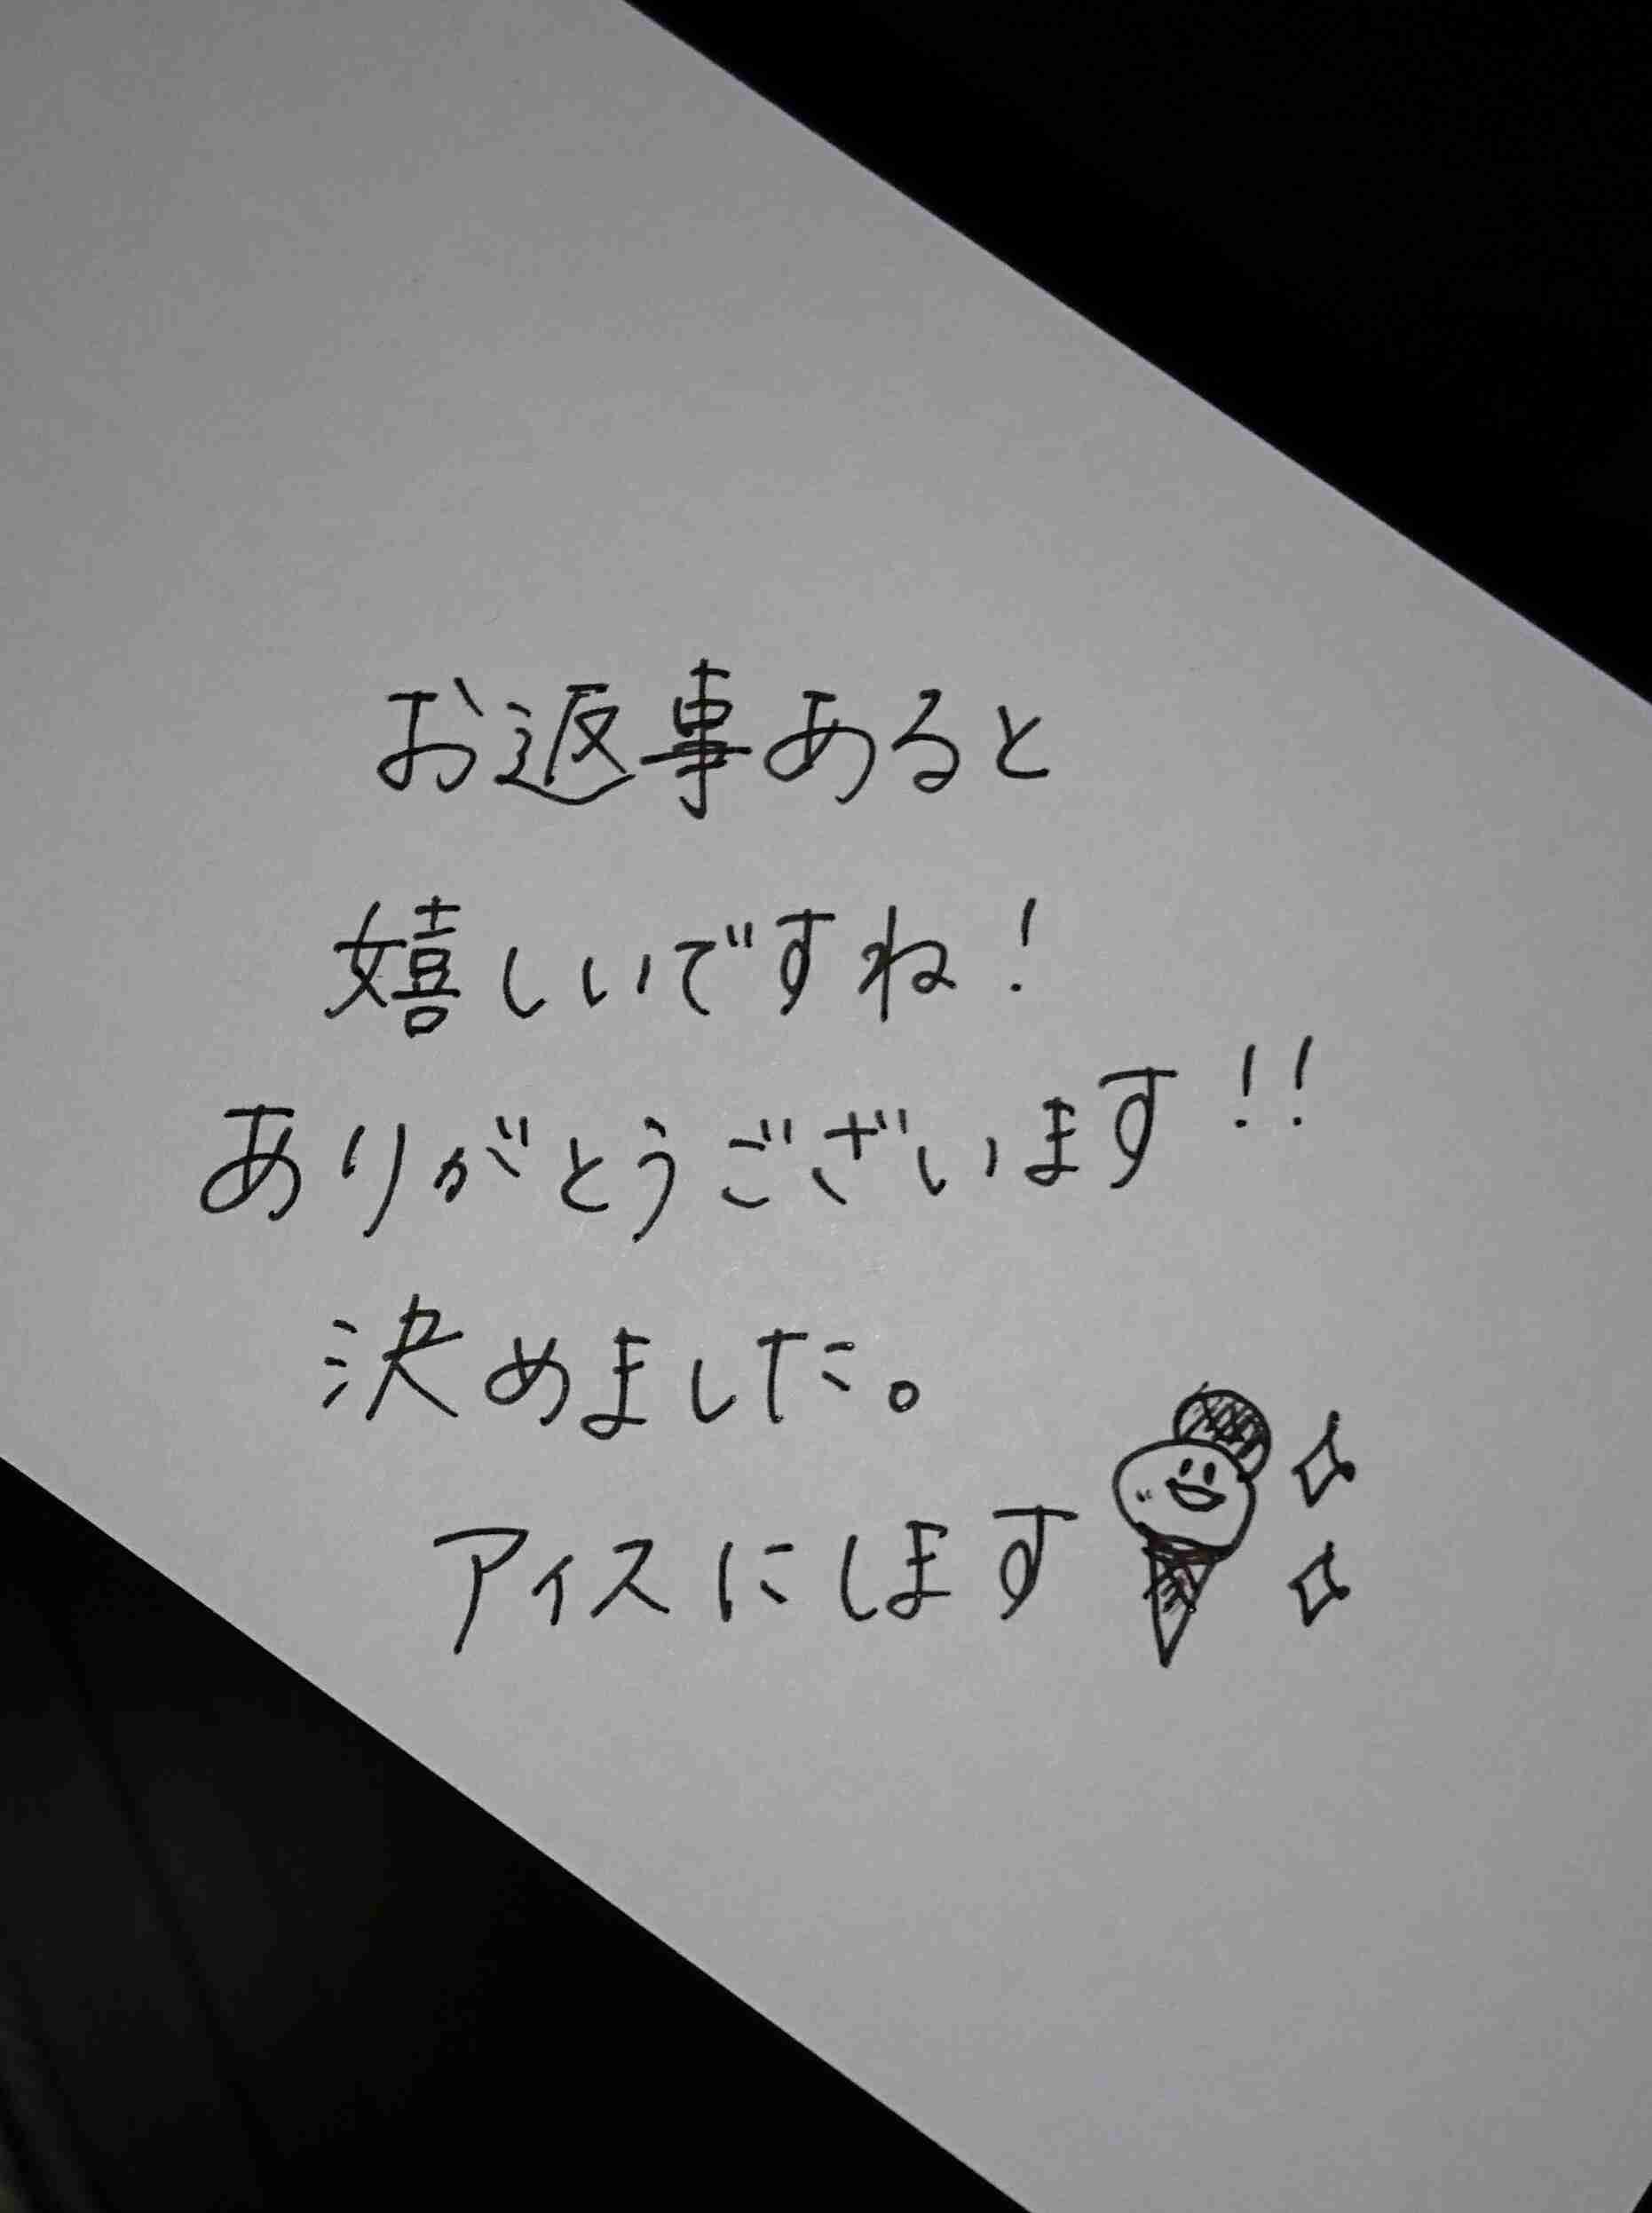 お返事あると
嬉しいですね!
ありがとうございます!!
決めました。
アイスにします